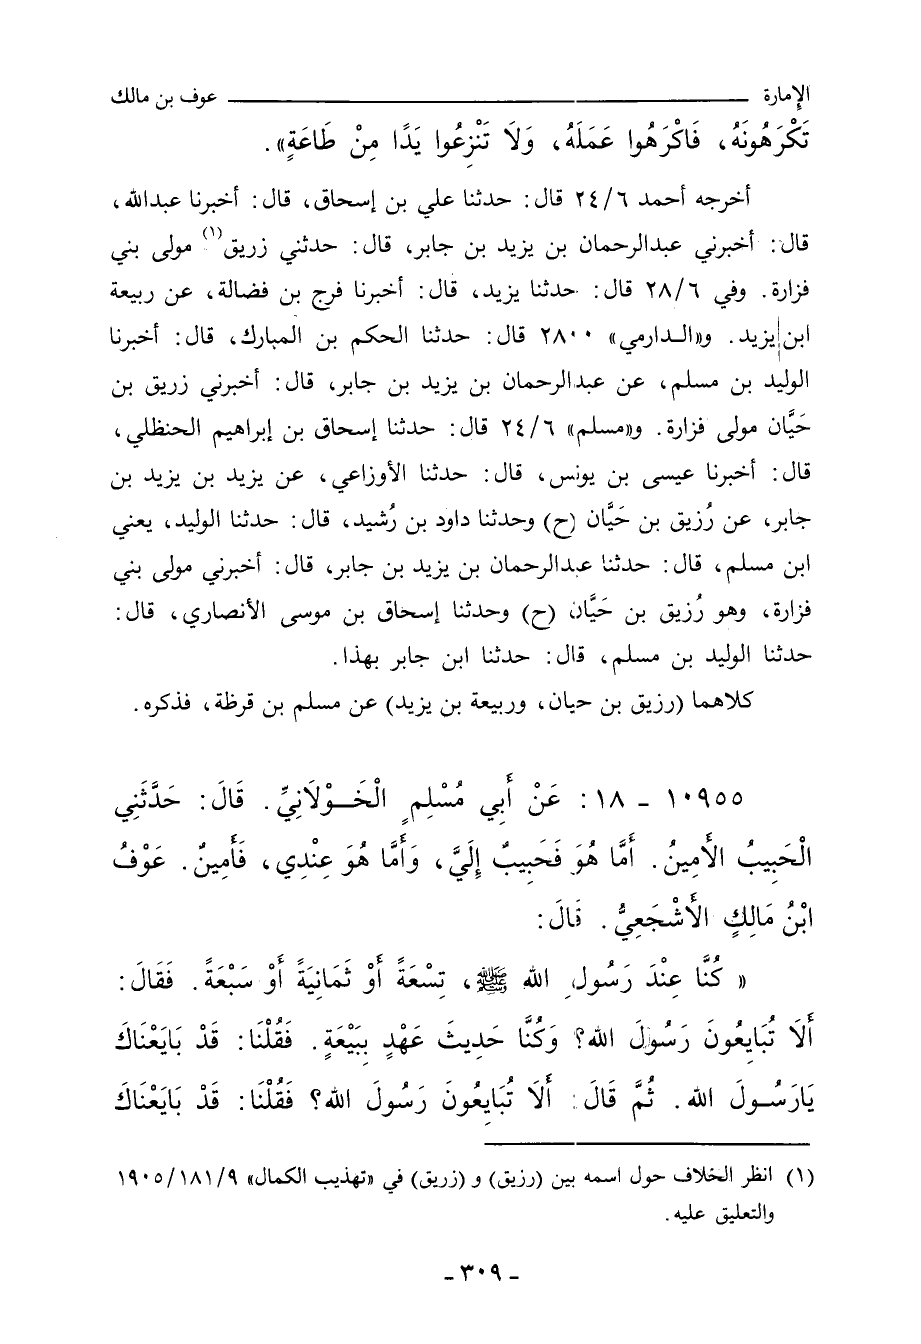 الإمارة ــــــــــــــــــــــــــــــــــ عوف بن مالك
تَكْرَهُونَهُ، فَاكْرَهُوا عَمَلَهُ، وَلَا تَنْزِعُوا يَدًا مِنْ طَاعَةٍ».
أخرجه أحمد ٢٤/٦ قال: حدثنا علي بن إسحاق، قال: أخبرنا عبدالله،
قال: أخبرني عبدالرحمان بن يزيد بن جابر، قال: حدثني زريق(١) مولى بني
فزارة. وفي ٢٨/٦ قال: حدثنا يزيد، قال: أخبرنا فرج بن فضالة، عن ربيعة
ابن يزيد. و«الدارمي» ٢٨٠٠ قال: حدثنا الحكم بن المبارك، قال: أخبرنا
الوليد بن مسلم، عن عبدالرحمان بن يزيد بن جابر، قال: أخبرني زريق بن
حَيَّان مولى فزارة. و«مسلم» ٢٤/٦ قال: حدثنا إسحاق بن إبراهيم الحنظلي،
قال: أخبرنا عيسى بن يونس، قال: حدثنا الأوزاعي، عن يزيد بن يزيد بن
جابر، عن رُزيق بن حَيَّان (ح) وحدثنا داود بن رُشيد، قال: حدثنا الوليد، يعني
ابن مسلم، قال: حدثنا عبدالرحمان بن يزيد بن جابر، قال: أخبرني مولى بني
فزارة، وهو رُزيق بن حَيَّان (ح) وحدثنا إسحاق بن موسى الأنصاري، قال:
حدثنا الوليد بن مسلم، قال: حدثنا ابن جابر بهذا.
كلاهما (رزيق بن حيان، وربيعة بن يزيد) عن مسلم بن قرظة، فذكره.
١٠٩٥٥ - ١٨: عَنْ أَبِي مُسْلِمٍ الْخَوْلَانِيِّ. قَالَ: حَدَّثَنِي
الْحَبِيبُ الأَمِينُ. أَمَّا هُوَ فَحَبِيبٌ إِلَيَّ، وَأَمَّا هُوَ عِنْدِي، فَأَمِينٌ. عَوْفُ
ابْنُ مَالِكٍ الأَشْجَعِيُّ. قَالَ:
« كُنَّا عِنْدَ رَسُولِ الله ﷺ، تِسْعَةً أَوْ ثَمَانِيَةً أَوْ سَبْعَةً. فَقَالَ:
أَلَا تُبَايِعُونَ رَسُولَ الله؟ وَكُنَّا حَدِيثَ عَهْدٍ بِبَيْعَةٍ. فَقُلْنَا: قَدْ بَايَعْنَاكَ
يَارَسُولَ الله. ثُمَّ قَالَ: أَلَا تُبَايِعُونَ رَسُولَ الله؟ فَقُلْنَا: قَدْ بَايَعْنَاكَ
(١) انظر الخلاف حول اسمه بين (رزيق) و (زريق) في «تهذيب الكمال» ١٩٠٥/١٨١/٩
والتعليق عليه.
- ٣٠٩ -